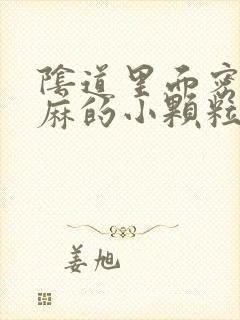 陰道里面密
麻的小顆粒
姜旭